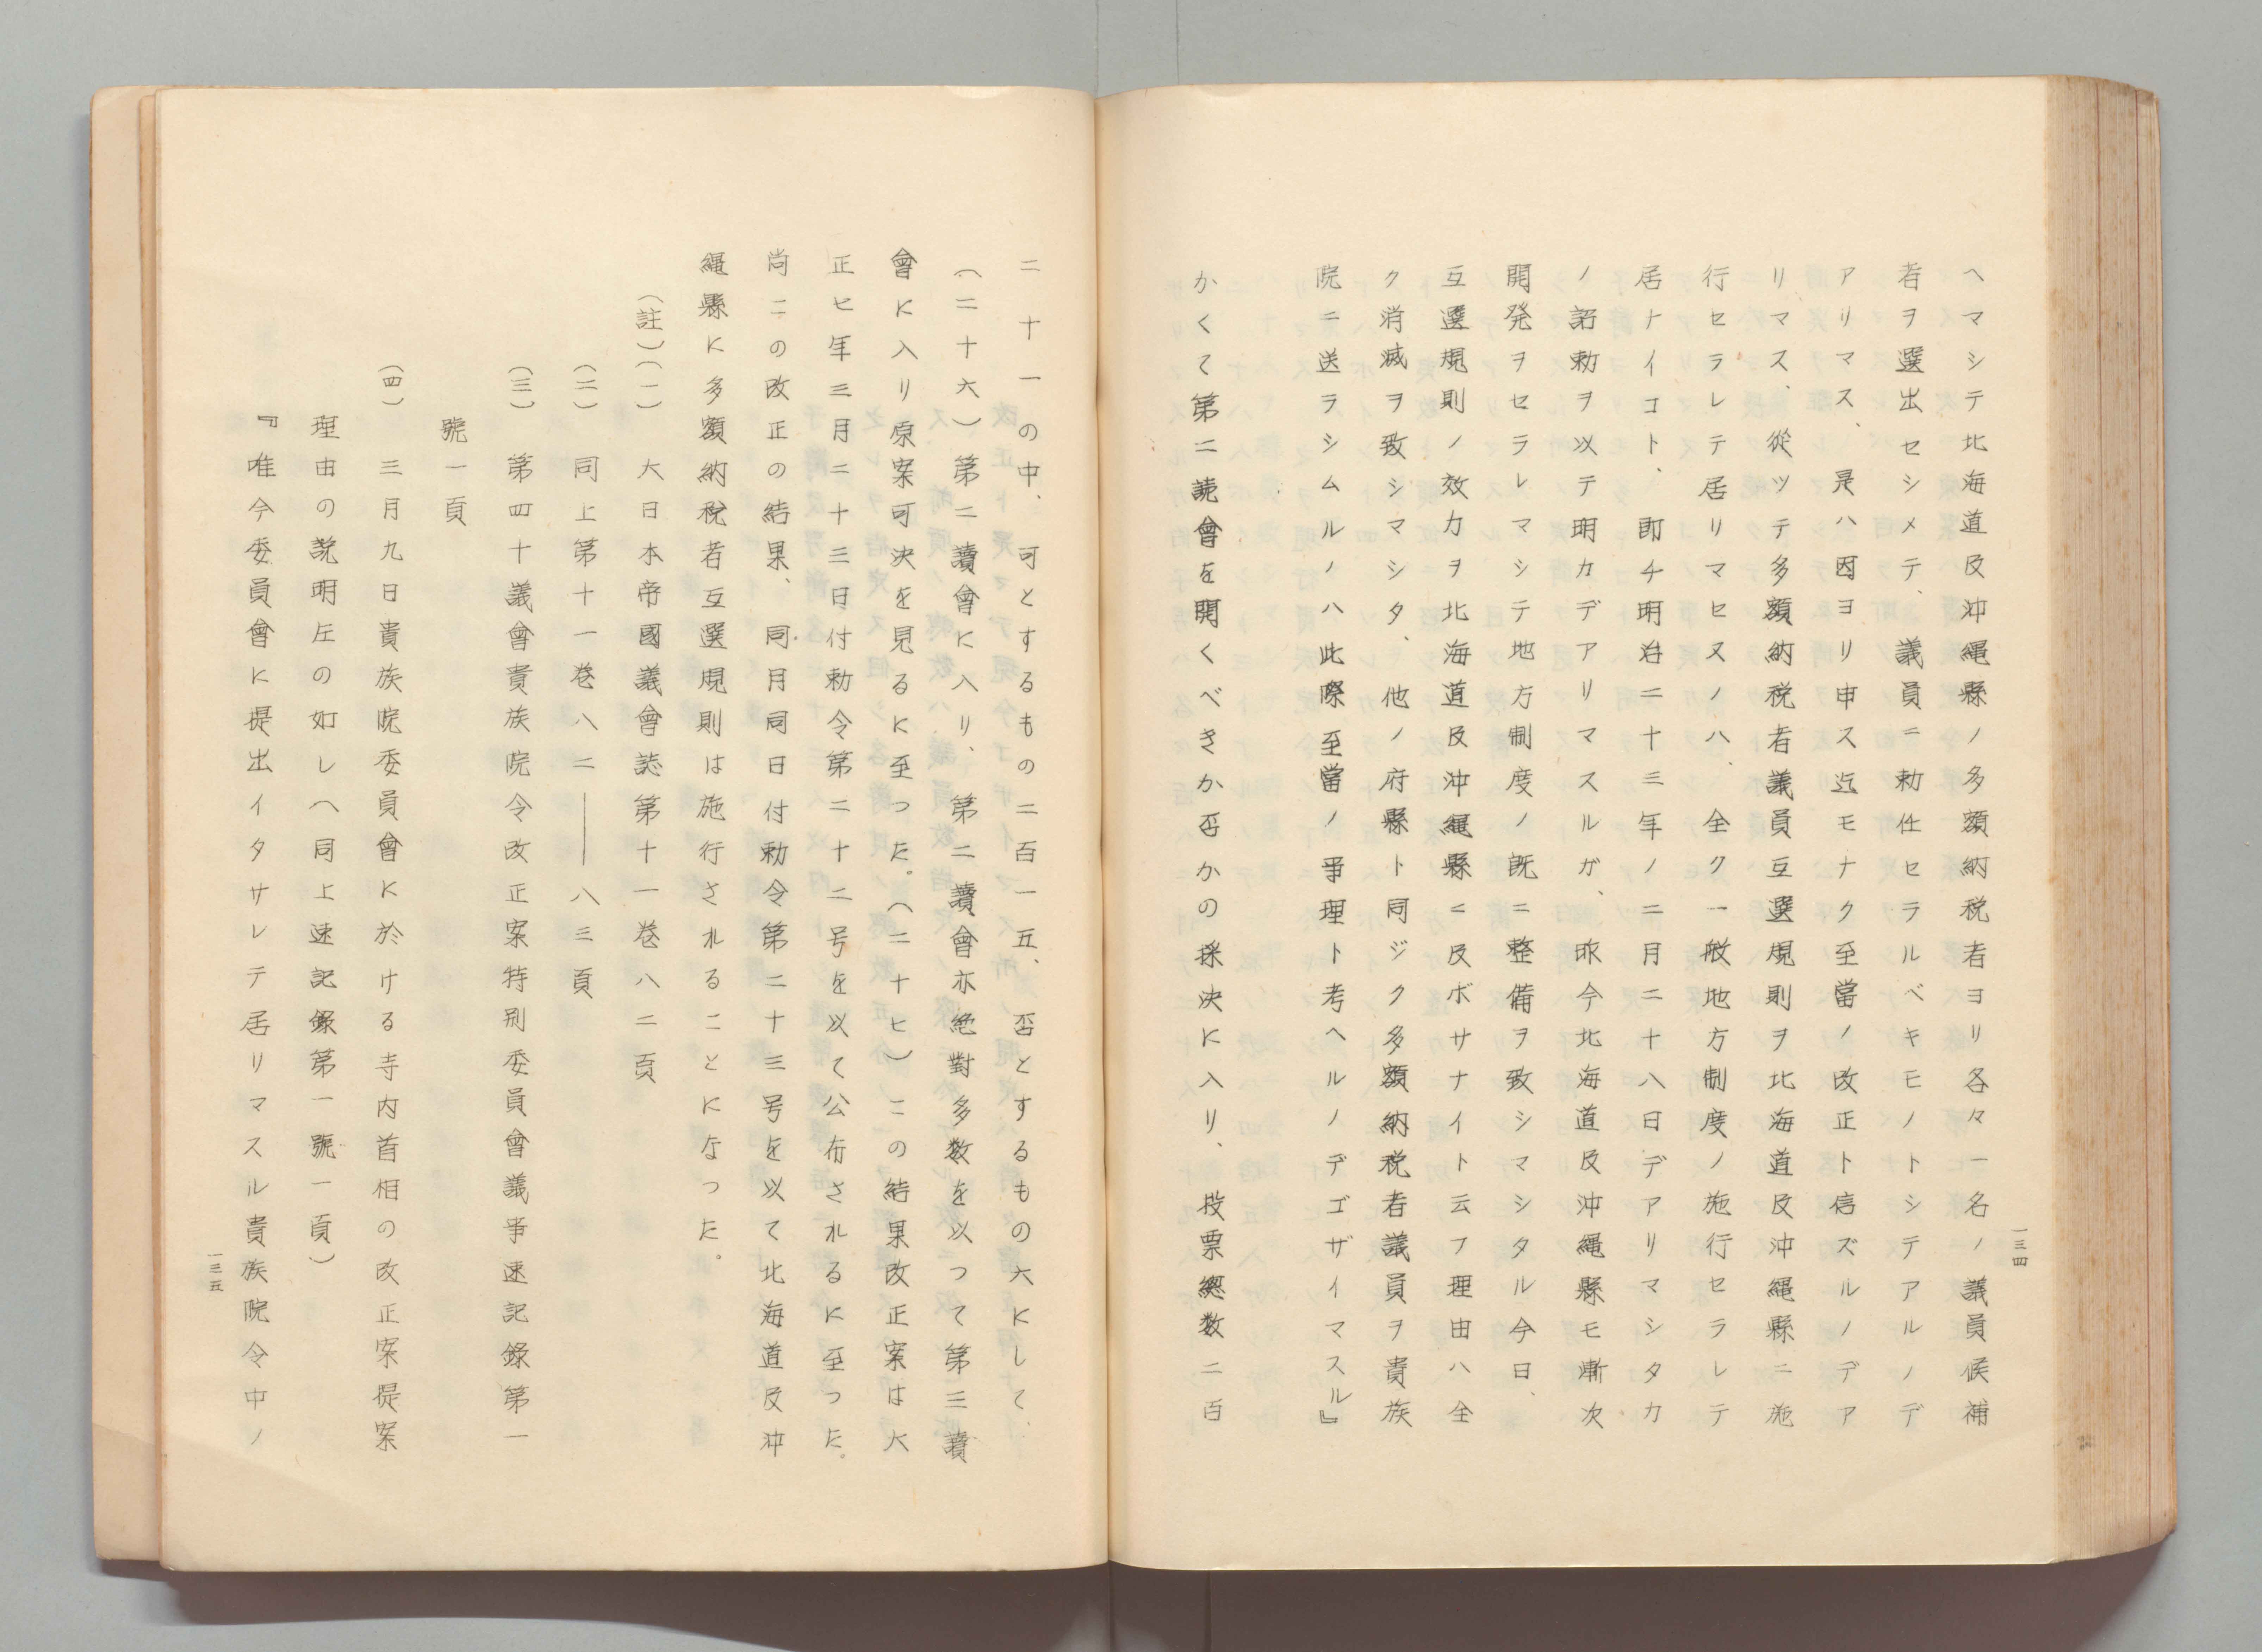 一三四
ヘマシテ北海道及沖縄縣ノ多額納税者ヨリ各々一名ノ議員候補
者ヲ選出セシメテ、議員ニ勅任セラルベキモノトシテアルノデ
アリマス、是ハ因ヨリ申ス迄モナク至當ノ改正ト信ズルノデア
リマス、從ツテ多額納税者議員互選規則ヲ北海道及沖縄縣ニ施
行セラレテ居リマセヌノハ、全ク一般地方制度ノ施行セラレテ
居ナイコト、即チ明治二十三年ノ二月二十八日デアリマシタカ
ノ詔勅ヲ以テ明カデアリマスルガ、昨今北海道及沖縄縣モ漸次
開発ヲセラレマシテ地方制度ノ既ニ整備ヲ致シマシタル今日、
互選規則ノ效力ヲ北海道及沖縄縣ニ及ボサナイト云フ理由ハ全
ク消滅ヲ致シマシタ、他ノ府縣ト同ジク多額納税者議員ヲ貴族
院ニ送ラシムルノハ此際至當ノ事理ト考ヘルノデゴザイマスル』
かくて第二読會を開くべきか否かの採決に入り、投票總数二百
二十一の中、可とするもの二百一五、否とするもの六にして、
（二十六）第二讀會に入り、第二讀會亦絶對多数を以つて第三讀
會に入り原案可決を見るに至つた。（二十七）この結果改正案は大
正七年三月二十三日付勅令第二十二号を以て公布されるに至つた。
尚この改正の結果、同月同日付勅令第二十三号を以て北海道及沖
縄縣に多額納税者互選規則は施行されることになつた。
（註）（一）　大日本帝國議會誌第十一巻八二頁
（二）　同上第十一巻八二——八三頁
（三）　第四十議會貴族院令改正案特別委員會議事速記録第一
號一頁
（四）　三月九日貴族院委員會に於ける寺内首相の改正案提案
理由の説明左の如し（同上速記録第一號一頁）
『唯今委員會に提出イタサレテ居リマスル貴族院令中ノ
一三五